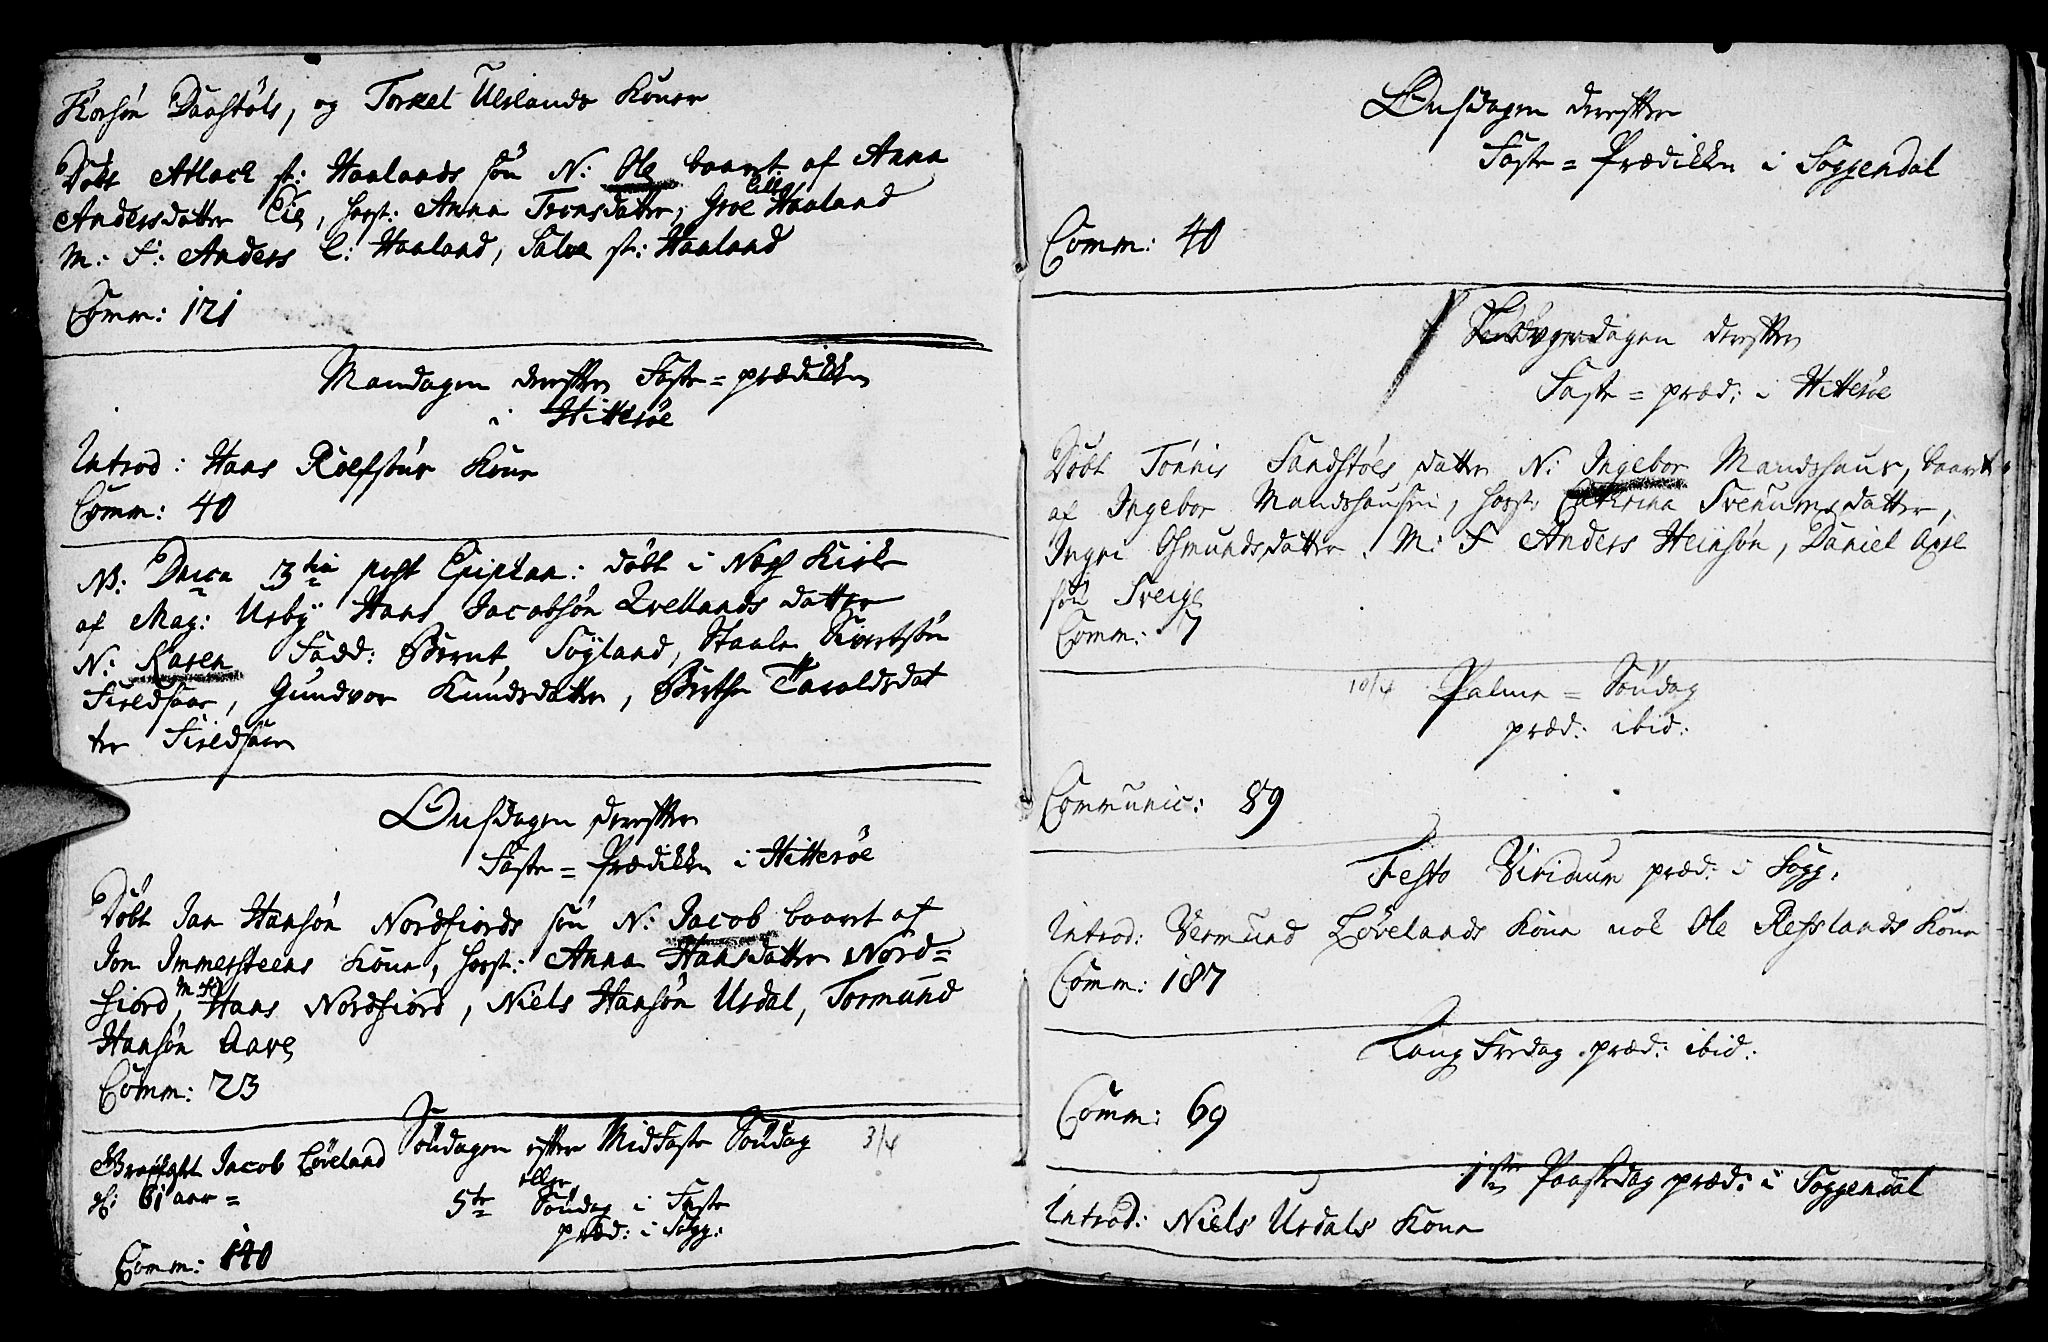 Torsön Daastöls, og Torkel Ulslands Koner
Döbt Atlack st: Haalands sön N: Ole baaret af Anna
Andersdatter Eie, forst: Anna Tronsdatter, Groe lille Haaland
M: F: Anders l: Haaland, Salve st: Haaland
Comm: 121
Mandagen derefter Faste = prædikken
i Hitteröe
Introd: Hans Rolfsöns Kone
Comm: 40
NB: Dnica 3tia post Epiphan: döbt i Næss Kirke
af Mag: Usby Hans Jacobsön Qvellands datter
N: Karen Fadd: Berent Föyland, Staale Sivertsön
Fieldsaae, Gundvor Knudsdatter, Berthe Taraldsdat
ter Fieldsaae
Onsdagen derefter
Faste = Prædikken i Hitteröe
Döbt Jan Hansön Nordfiords sön N: Jacob baaret af
Jon Immersteens Kone, forst: Anna Hansdatter Nord=
fiord, M F: Hans Nordfiord, Niels Hansön Urdal, Tormund
Hansön Aavel
Comm: 23
Söndagen efter MidFaste Söndag 3/4
Begrafvet Jacob Löveland
61 aar =
eller
5te Söndag i Faste
præd: i Sogg:
Comm: 140
Onsdagen derefter
Faste = Prædikken i Soggendal
Comm: 40
derefter
Faste = præd: i Hitteröe
Döbt Tönnis Sandstöes datter N: Ingebor Mandshaus, baaret
af Ingebor Mandshausen, forst: Cathrina Svenumsdatter,
Ingri Osmundsdatter, M: F Anders Heinsön, Daniel Axel
sön Sveige
Comm: 7
10/4 Palme = Söndag
præd: ibid:
Communic: 89
Festo Viridium præd: i Sogg:
Introd: Vermund Lövelands Kone nok Ole Refslands Kone
Comm: 187
Lang Fredag præd: ibid:
Comm: 69
1ste Paaskedag præd: i Soggendal
Introd: Niels Urdals Kone